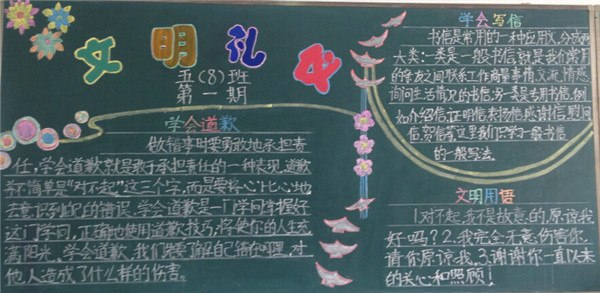 文明礼
五(8)班
第一期
学会道歉
做错事时要勇敢地承担责
任,学会道歉就是敢于承担责任的一种表现,道歉
并不简单是“对不起”这三个字,而是要将心比心地
去意识到自己的错误。学会道歉是一门学问,掌握好
这门学问,正确地使用道歉技巧,将使你的人生充
满阳光。学会道歉,我们先要了解自己错在哪里,对
他人造成了什么样的伤害。
学会写信
书信是常用的一种应用文,分成两
大类:一类是一般书信,就是我们常用
的亲友之间联系工作商量事情,交流情感,
询问生活情况的书信,另一类是专用书信,例
如介绍信,证明信,表扬信,感谢信,慰问
信,贺信等,这里我们只学习一般书信
的一般写法
文明用语
1.对不起,我不是故意的,原谅我
好吗?2.我完全无意伤害你,
请你原谅我。3.谢谢你一直以来
的关心和照顾!